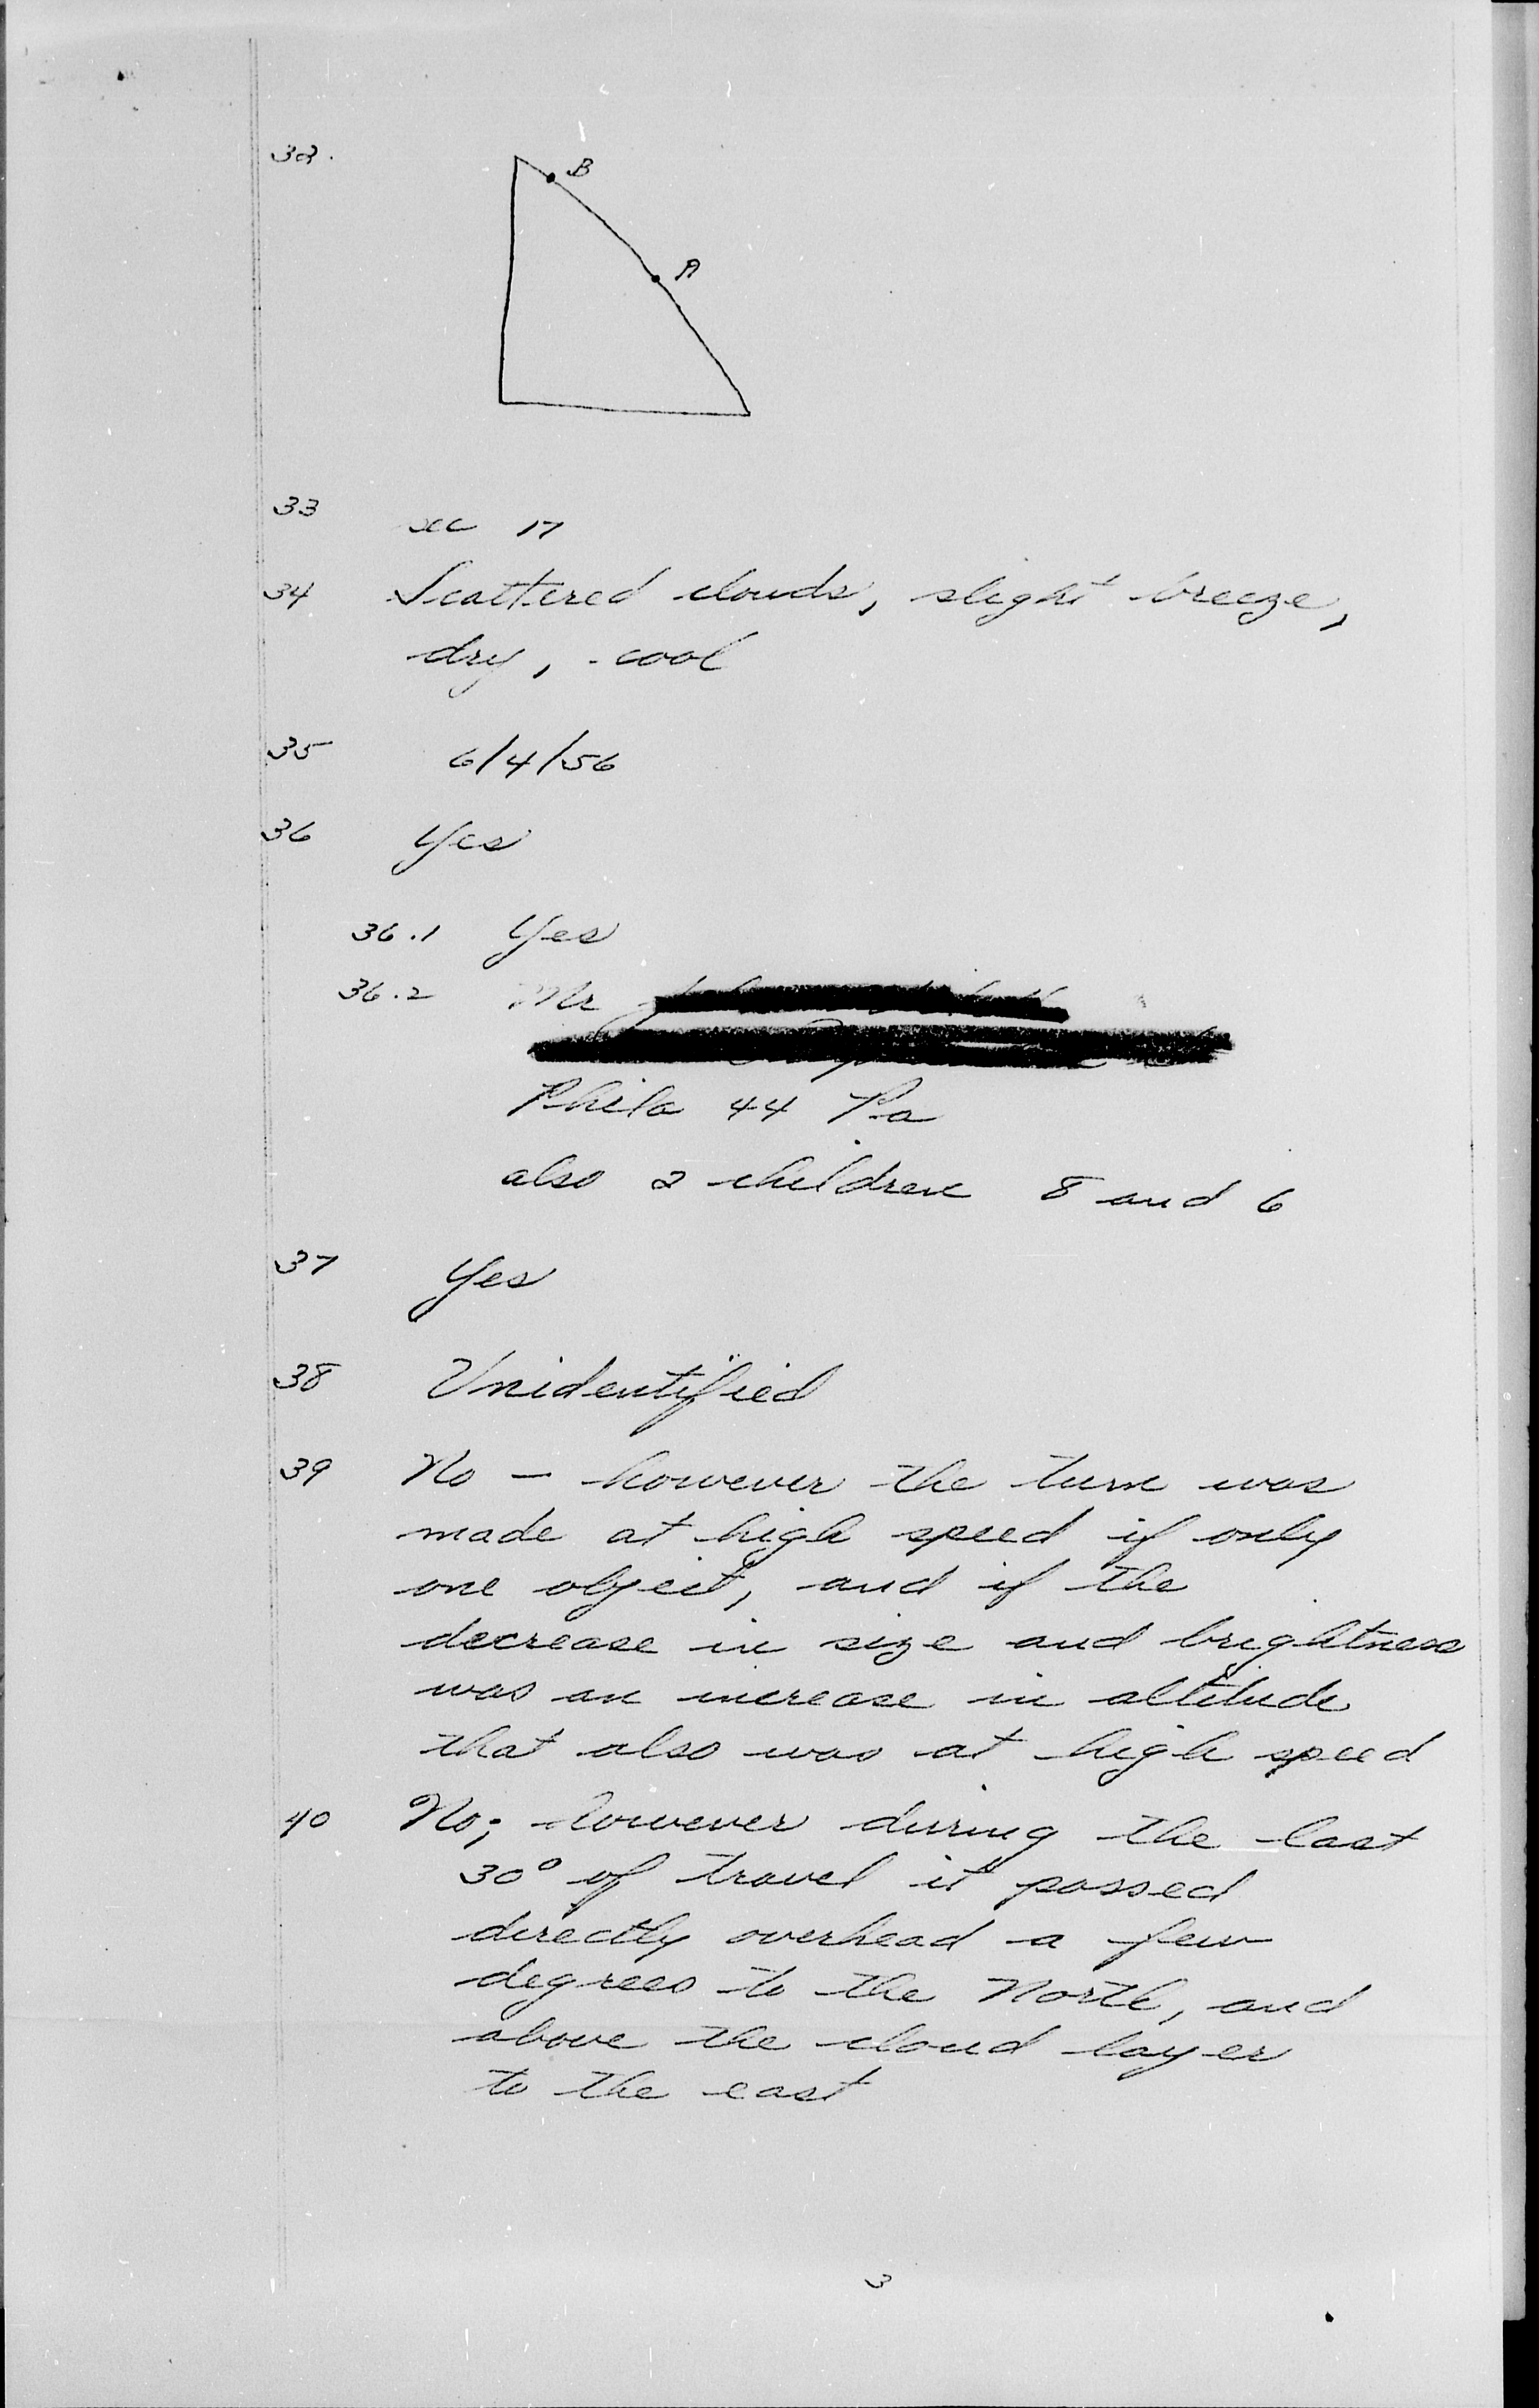 32.
B
A
33 see 17
34 Scattered clouds, slight breeze,
dry, cool
35 6/4/56
36 Yes
36.1 Yes
36.2 Mr
Phila 44 Pa
also 2 children 8 and 6
37 Yes
38 Unidentified
39 No – however the turn was
made at high speed if only
one object, and if the
decrease in size and brightness
was an increase in altitude
that also was at high speed
40 No; however during the last
30° of travel it passed
directly overhead a few
degrees to the North, and
above the cloud layer
to the east
3